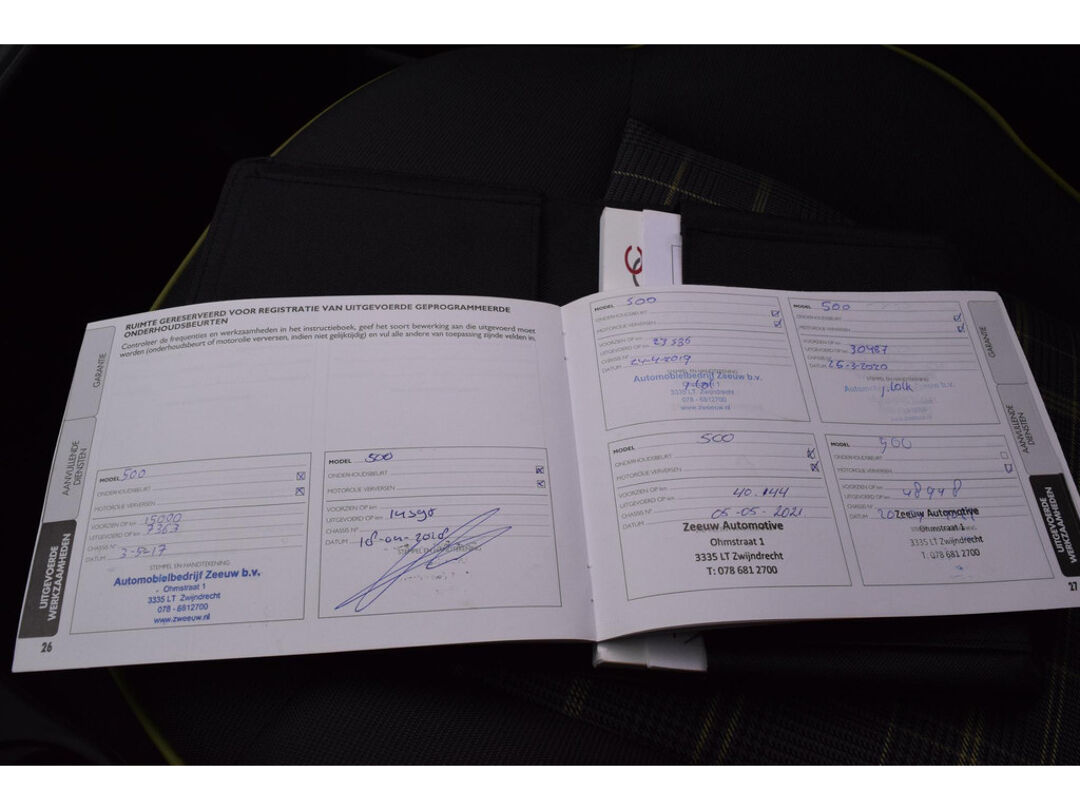 RUIMTE GERESERVEERD VOOR REGISTRATIE VAN UITGEVOERDE GEPROGRAMMEERDE
ONDERHOUDSBEURTEN
Controleer de frequenties en werkzaamheden in het instructieboek, geef het soort bewerking aan die uitgevoerd moet
worden (onderhoudsbeurt of motorolie verversen, indien niet gelijktijdig) en vul alle andere van toepassing zijnde velden in.
GARANTIE
AANVULLENDE
DIENSTEN
UITGEVOERDE
WERKZAAMHEDEN
MODEL 500
ONDERHOUDSBEURT
MOTOROLIE VERVERSEN
VOORZIEN OP km 15000
UITGEVOERD OP km 7363
CHASSIS N°
DATUM 3-5-17
STEMPEL EN HANDTEKENING
Automobielbedrijf Zeeuw b.v.
Ohmstraat 1
3335 LT Zwijndrecht
078 - 6812700
www.zweeuw.nl
MODEL 500
ONDERHOUDSBEURT
MOTOROLIE VERVERSEN
VOORZIEN OP km
UITGEVOERD OP km 14590
CHASSIS N°
DATUM
STEMPEL EN HANDTEKENING
26
MODEL 500
ONDERHOUDSBEURT
MOTOROLIE VERVERSEN
VOORZIEN OP km
UITGEVOERD OP km 23536
CHASSIS N°
DATUM 24-4-2019
STEMPEL EN HANDTEKENING
Automobielbedrijf Zeeuw b.v.
3335 LT Zwijndrecht
078 - 6812700
www.zweeuw.nl
MODEL 500
ONDERHOUDSBEURT
MOTOROLIE VERVERSEN
VOORZIEN OP km
UITGEVOERD OP km 30487
CHASSIS N°
DATUM 25-3-2020
STEMPEL EN HANDTEKENING
MODEL 500
ONDERHOUDSBEURT
MOTOROLIE VERVERSEN
VOORZIEN OP km
UITGEVOERD OP km 40.144
CHASSIS N°
DATUM 05-05-2021
Zeeuw Automotive
Ohmstraat 1
3335 LT Zwijndrecht
T: 078 681 2700
MODEL 500
ONDERHOUDSBEURT
MOTOROLIE VERVERSEN
VOORZIEN OP km
UITGEVOERD OP km 48948
CHASSIS N°
DATUM
Zeeuw Automotive
Ohmstraat 1
3335 LT Zwijndrecht
T: 078 681 2700
GARANTIE
AANVULLENDE
DIENSTEN
UITGEVOERDE
WERKZAAMHEDEN
27